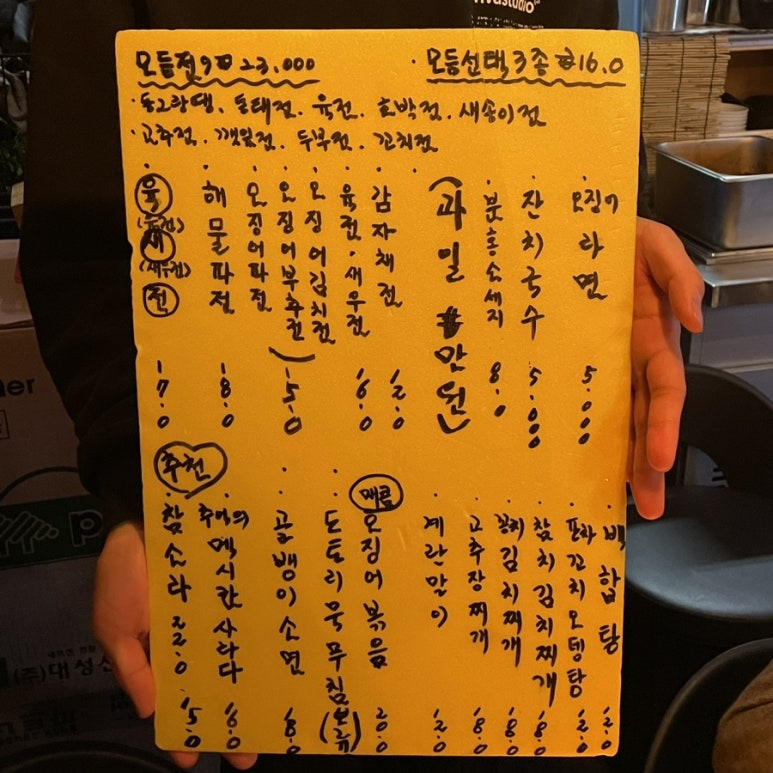 vivastudio
모듬전 9P 23,000
· 모듬선택 3종 ₩16.0
· 동그랑땡. 동태전. 육전. 호박전. 새송이전
· 고추전. 깻잎전. 두부전. 꼬치전
육(육전)새(새우전)전 17.0
해물파전 18.0
오징어파전
오징어부추전
오징어김치전 15.0
육전·새우전 16.0
감자채전 12.0
(과일 ₩만원)
분홍소세지 8.0
잔치국수 5.000
오징어라면 5.000
추천
참소라 22.0 15.0
추억의 멕시칸사라다 16.0
골뱅이소면 18.0
도토리묵무침(보류)
매콤 오징어볶음 20.0
계란말이 12.0
고추장찌개 18.0
꽁치김치찌개 18.0
참치김치찌개 18.0
포차꼬치오뎅탕 12.0
백합탕 12.0
ner
(주)대성